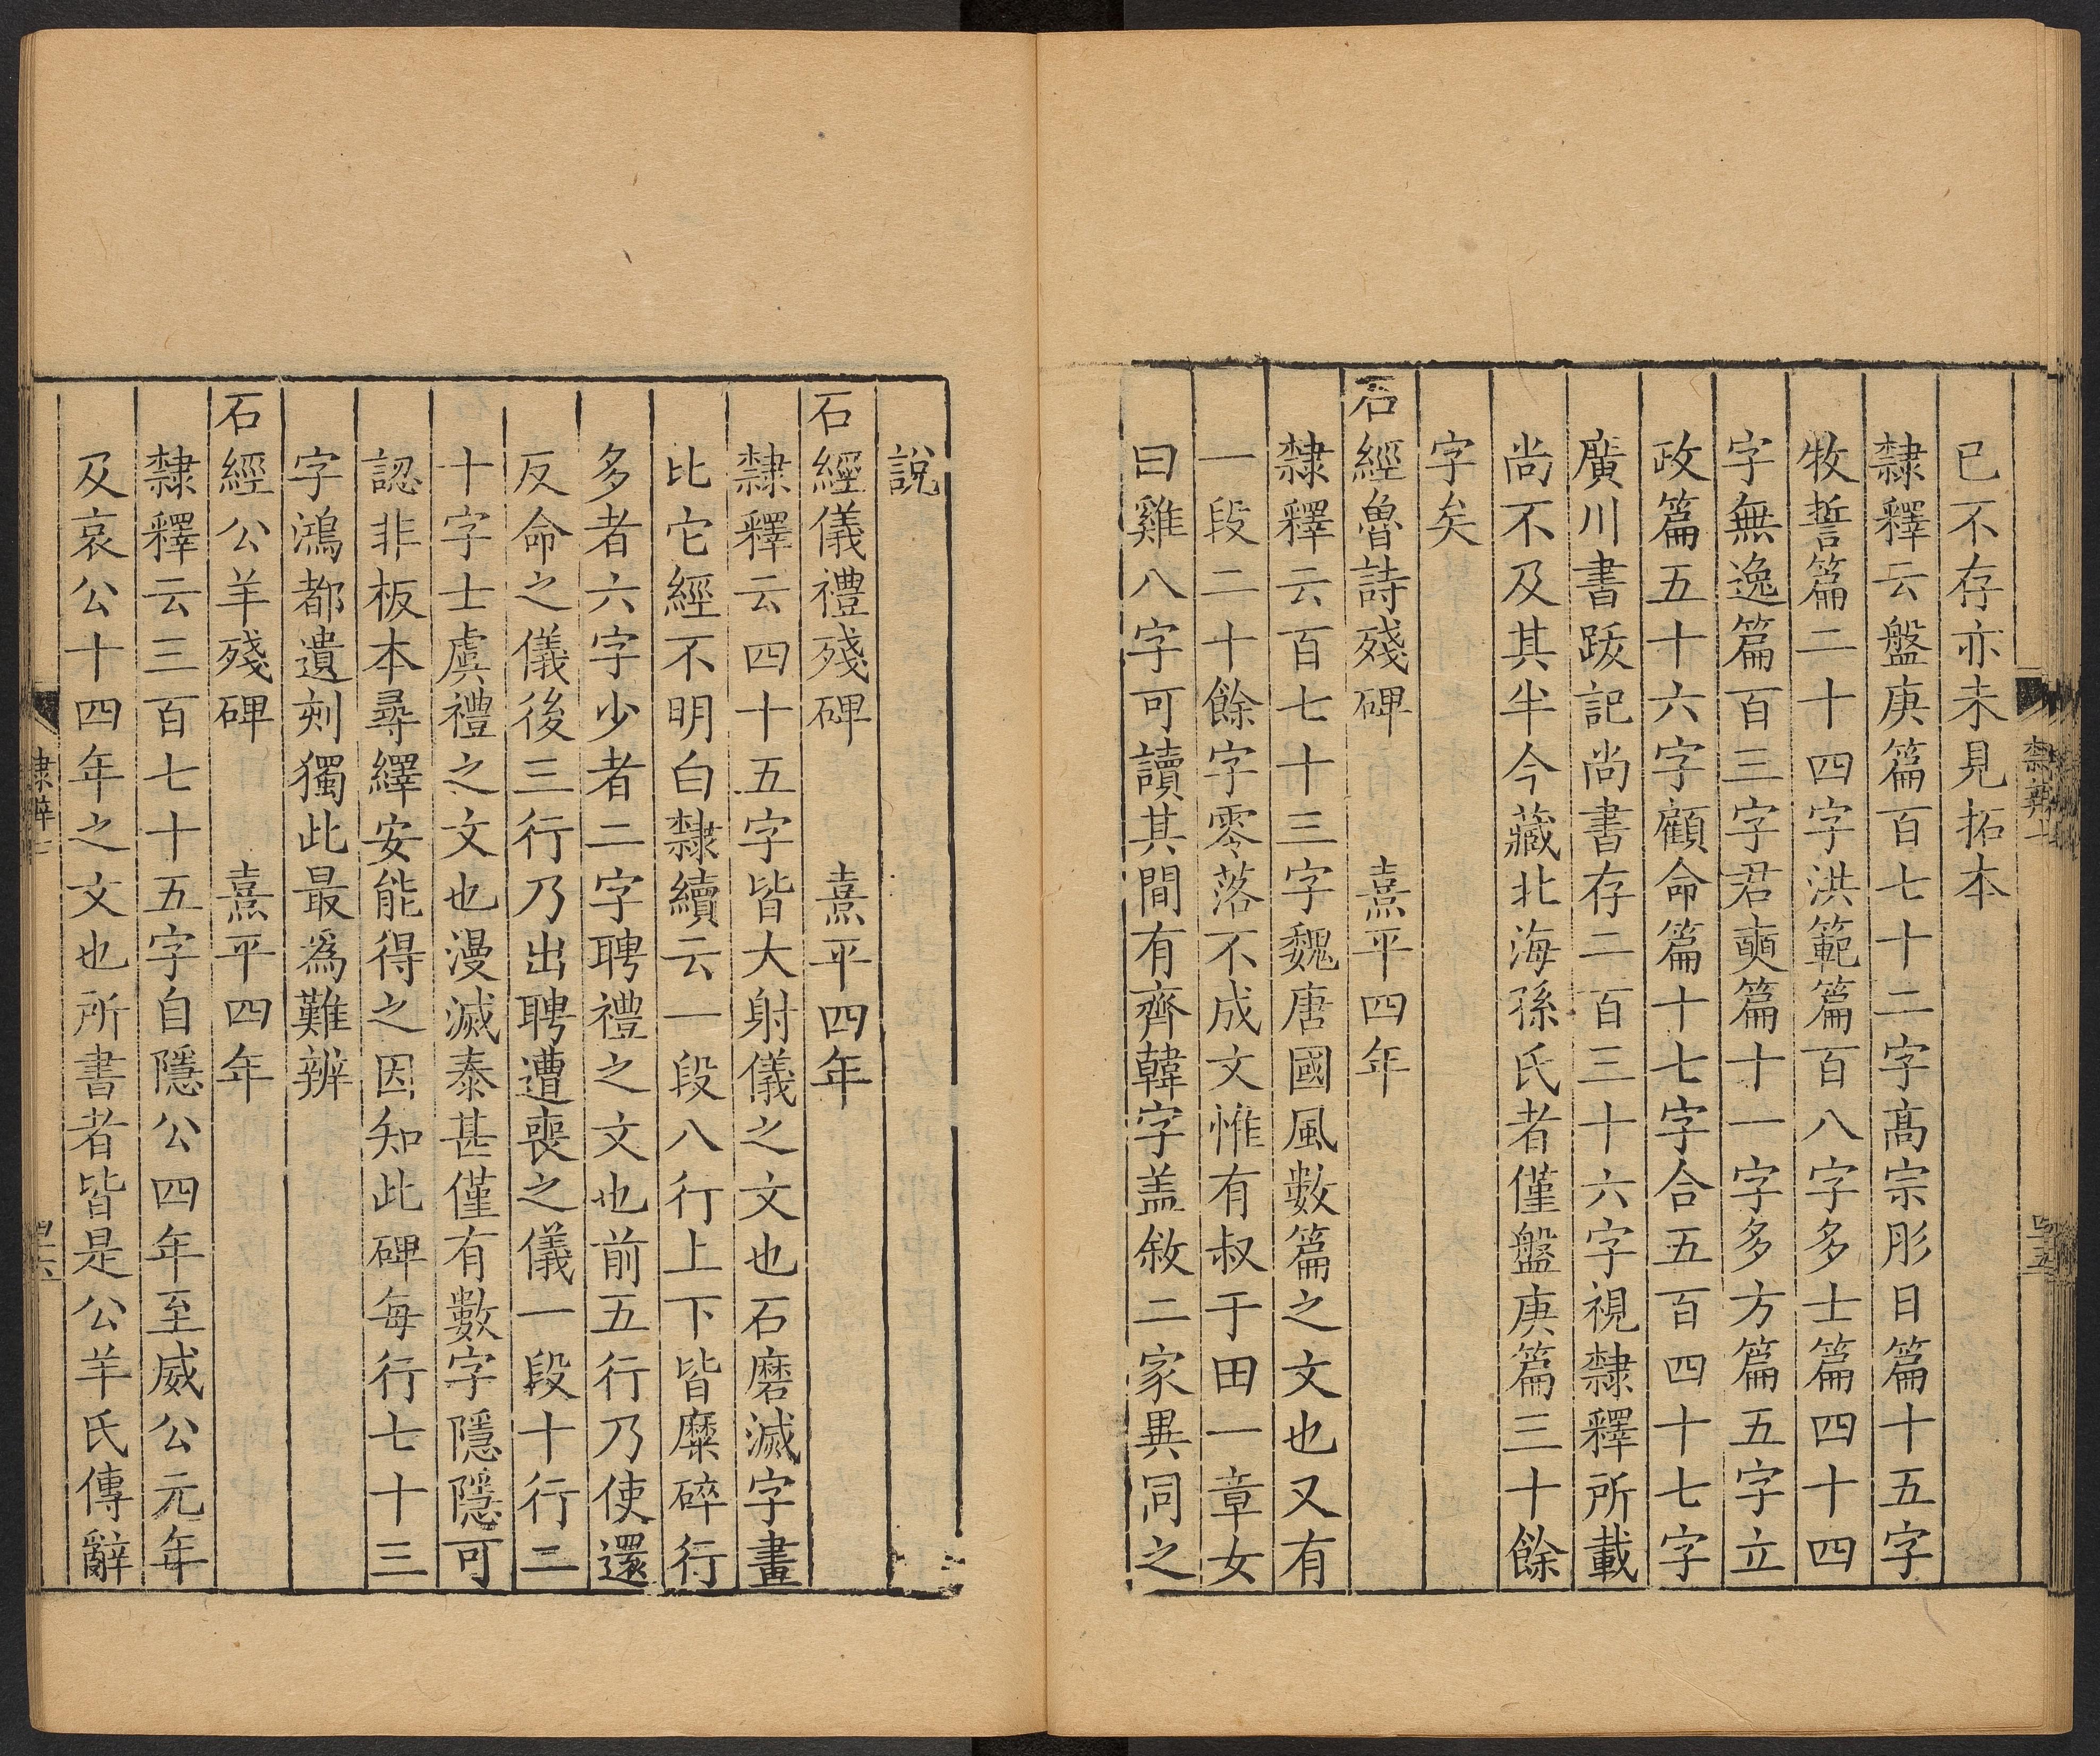 已不存亦未見拓本
隸釋云盤庚篇百七十二字高宗肜日篇十五字
牧誓篇二十四字洪範篇百八字多士篇四十四
字無逸篇百三字君奭篇十一字多方篇五字立
政篇五十六字顧命篇十七字合五百四十七字
廣川書跋記尚書存二百三十六字視隸釋所載
尚不及其半今藏北海孫氏者僅盤庚篇三十餘
字矣
石經魯詩殘碑 熹平四年
隸釋云百七十三字魏唐國風數篇之文也又有
一段二十餘字零落不成文惟有叔于田一章女
曰雞八字可讀其間有齊韓字盖敘二家異同之
說
石經儀禮殘碑 熹平四年
隸釋云四十五字皆大射儀之文也石磨滅字畫
比它經不明白隸續云一段八行上下皆糜碎行
多者六字少者二字聘禮之文也前五行乃使還
反命之儀後三行乃出聘遭喪之儀一段十行二
十字士虞禮之文也漫滅泰甚僅有數字隱隱可
認非板本尋繹安能得之因知此碑每行七十三
字鴻都遺刻獨此最為難辨
石經公羊殘碑 熹平四年
隸釋云三百七十五字自隱公四年至威公元年
及哀公十四年之文也所書者皆是公羊氏傳辭